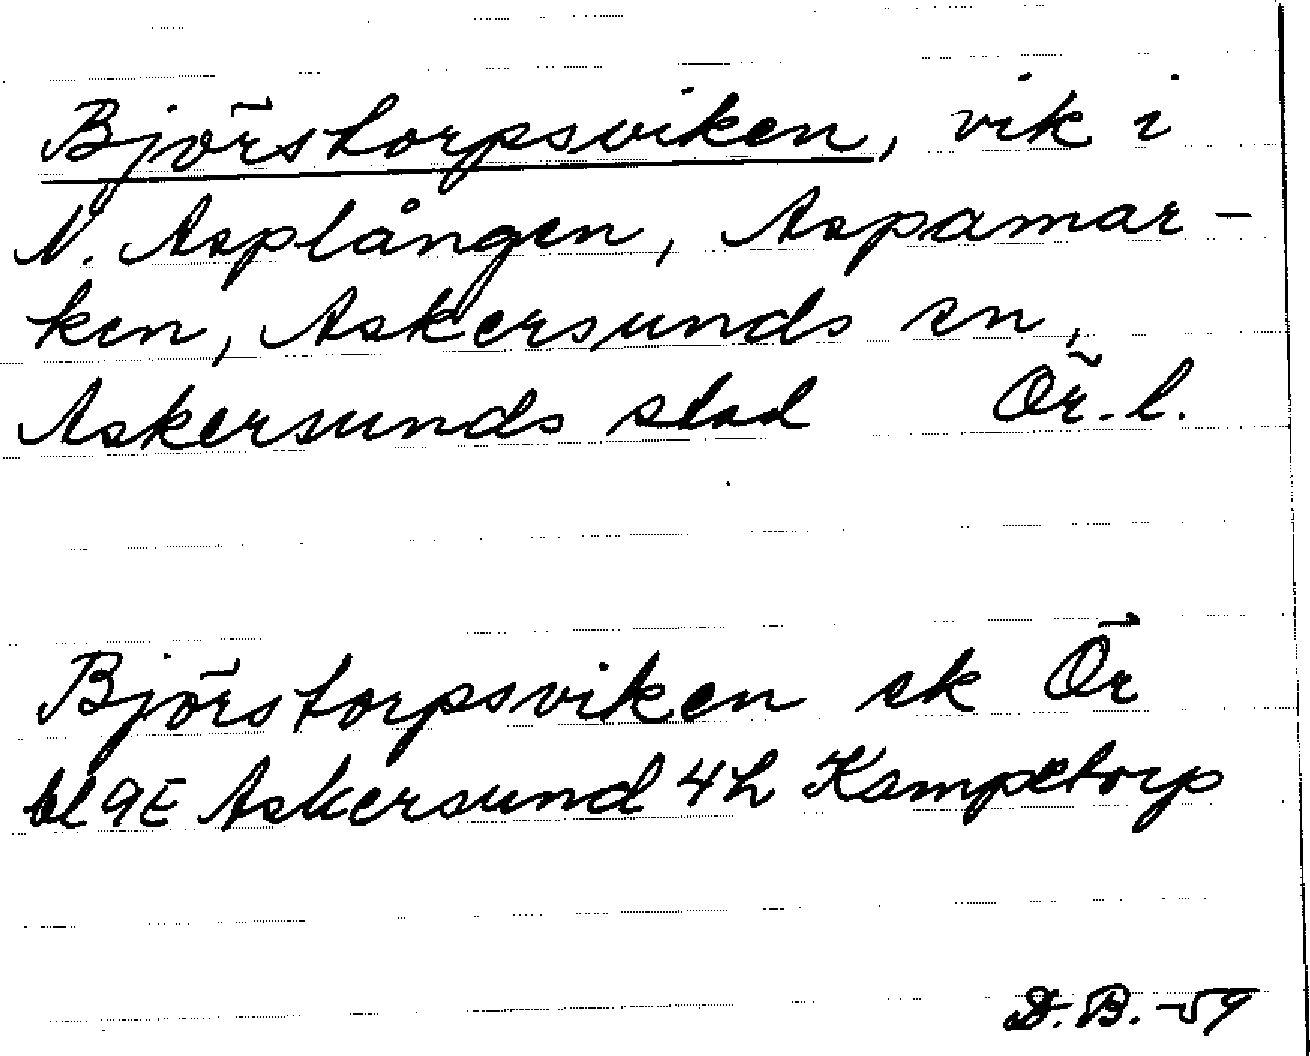 Björstorpsviken, vik i
N. Asplången, Aspamar-
ken, Askersunds sn,
Askersunds stad Ör. l.
Björstorpsviken ek Ör
bl 9E Askersund 4h Kampetorp
D.B.-59